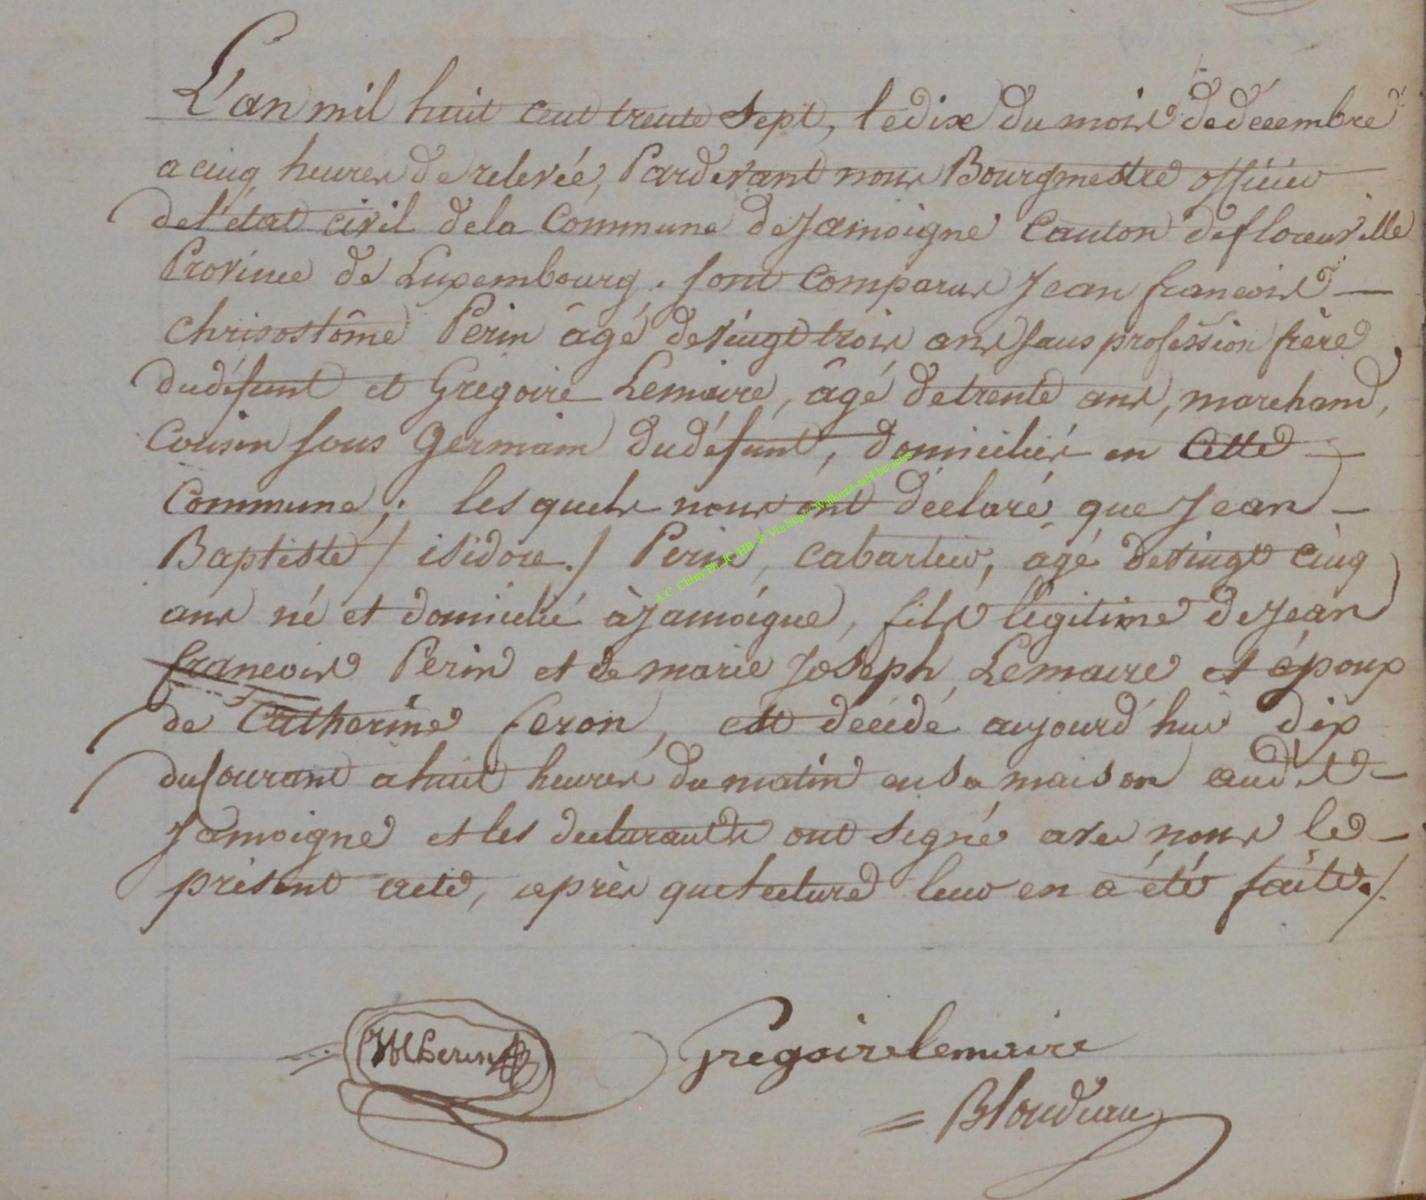 L'an mil huit cent trente sept, le dix du mois de decembre
a cinq heures de relevée, Pardevant nous Bourgmestre officier
de l'état civil de la Commune de Jamoigne Canton de florenville
Province de Luxembourg. sont comparus Jean francois
chrisostôme Perin âgé de vingt trois ans sans profession frère
du défunt et Gregoire Lemaire, âgé de trente ans, marchand,
Cousin sous germain du défunt, domiciliés en Cette
Commune; lesquels nous ont déclaré que Jean
Baptiste / isidore / Perin, cabartier, agé de vingt cinq
ans né et domicilié à Jamoigne, fils légitime de Jean
francois Perin et de marie Joseph Lemaire et époux
de Catherine feron, est décédé aujourd'hui dix
du Courant a huit heures du matin en sa maison audit
Jamoigne et les declarants ont signé avec nous le
présent acte, après que lecture leur en a été faite./.
Perin
Gregoire lemaire
Blondeau